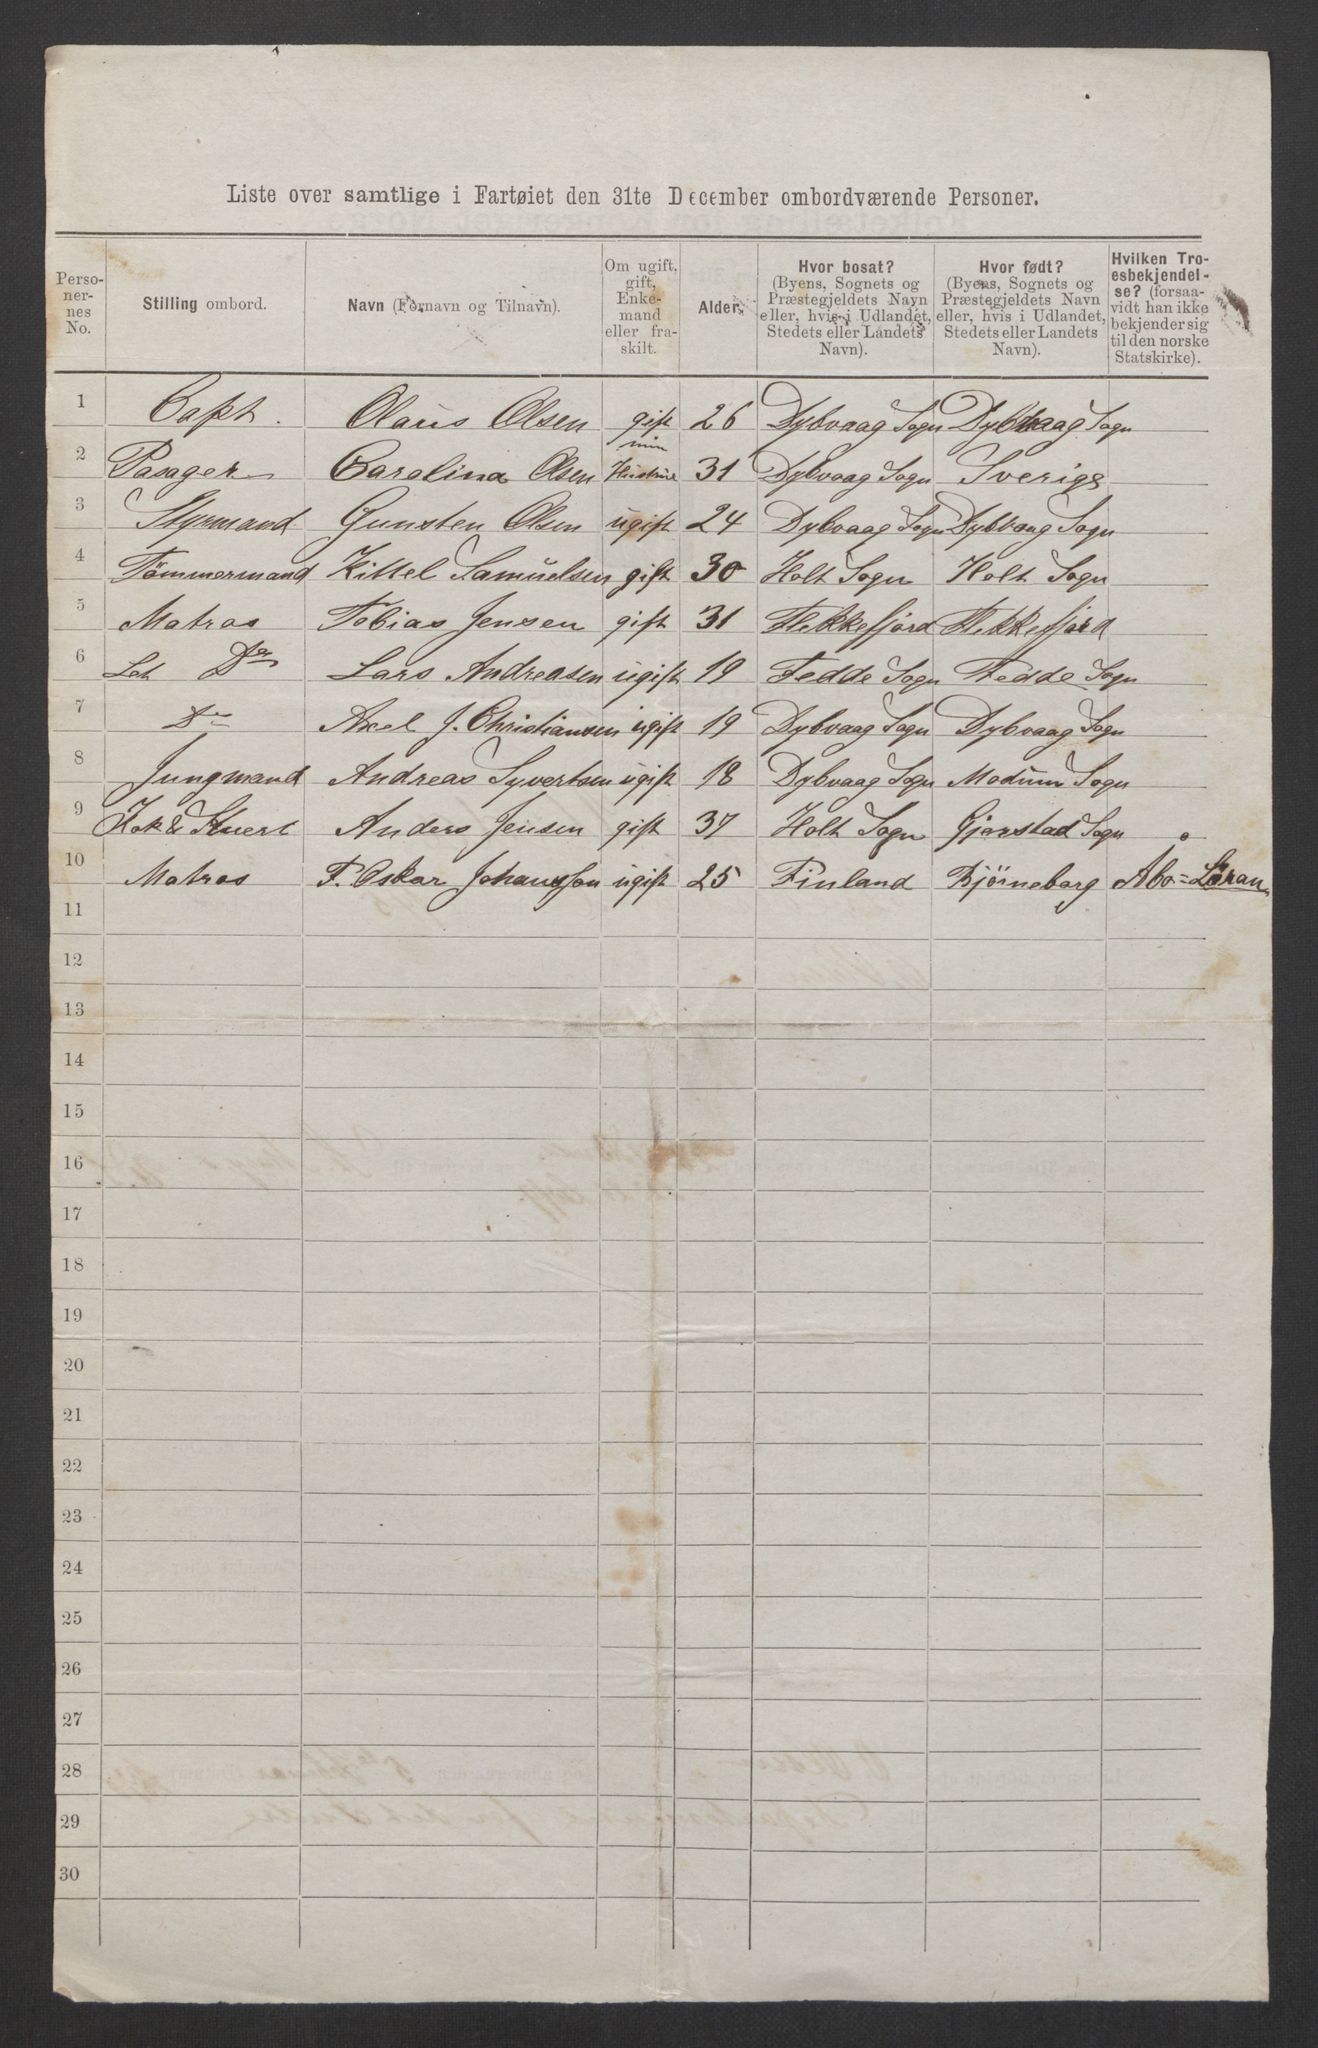 Liste over samtlige i Fartøiet den 31te December ombordværende Personer.
Perso-
ner-
nes
No.
Stilling ombord.
Navn (Fornavn og Tilnavn).
Om ugift,
gift,
Enke-
mand
eller fra-
skilt.
Alder.
Hvor bosat?
(Byens, Sognets og
Præstegjeldets Navn
eller, hvis i Udlandet,
Stedets eller Landets
Navn).
Hvor født?
(Byens, Sognets og
Præstegjeldets Navn
eller, hvis i Udlandet,
Stedets eller Landets
Navn).
Hvilken Tro-
esbekjendel-
se? (forsaa-
vidt han ikke
bekjender sig
til den norske
Statskirke).
1 Capt. Olaus Olsen gift 26 Dybvaag Sogn Dybvaag Sogn
min
2 Pasager Carolina Olsen Hustrue 31 Dybvaag Sogn Sverige
3 Styrmand Gunsten Olsen ugift 24 Dybvaag Sogn Dybvaag Sogn
4 Tömmermand Kittel Samuelsen gift 30 Holt Sogn Holt Sogn
5 Matros Tobias Jensen gift 31 Flekkefjord Flekkefjord
6 Let Do Lars Andreasen ugift 19 Fedde Sogn Fedde Sogn
7 Do Axel J. Christiansen ugift 19 Dybvaag Sogn Dybvaag Sogn
8 Jungmand Andreas Syvertsen ugift 18 Dybvaag Sogn Modum Sogn
9 Kok & Stuert Anders Jensen gift 37 Holt Sogn Gjerstad Sogn
10 Matros F. Oskar Johansson ugift 25 Finland Bjørneborg Abo=
11
12
13
14
15
16
17
18
19
20
21
22
23
24
25
26
27
28
29
30